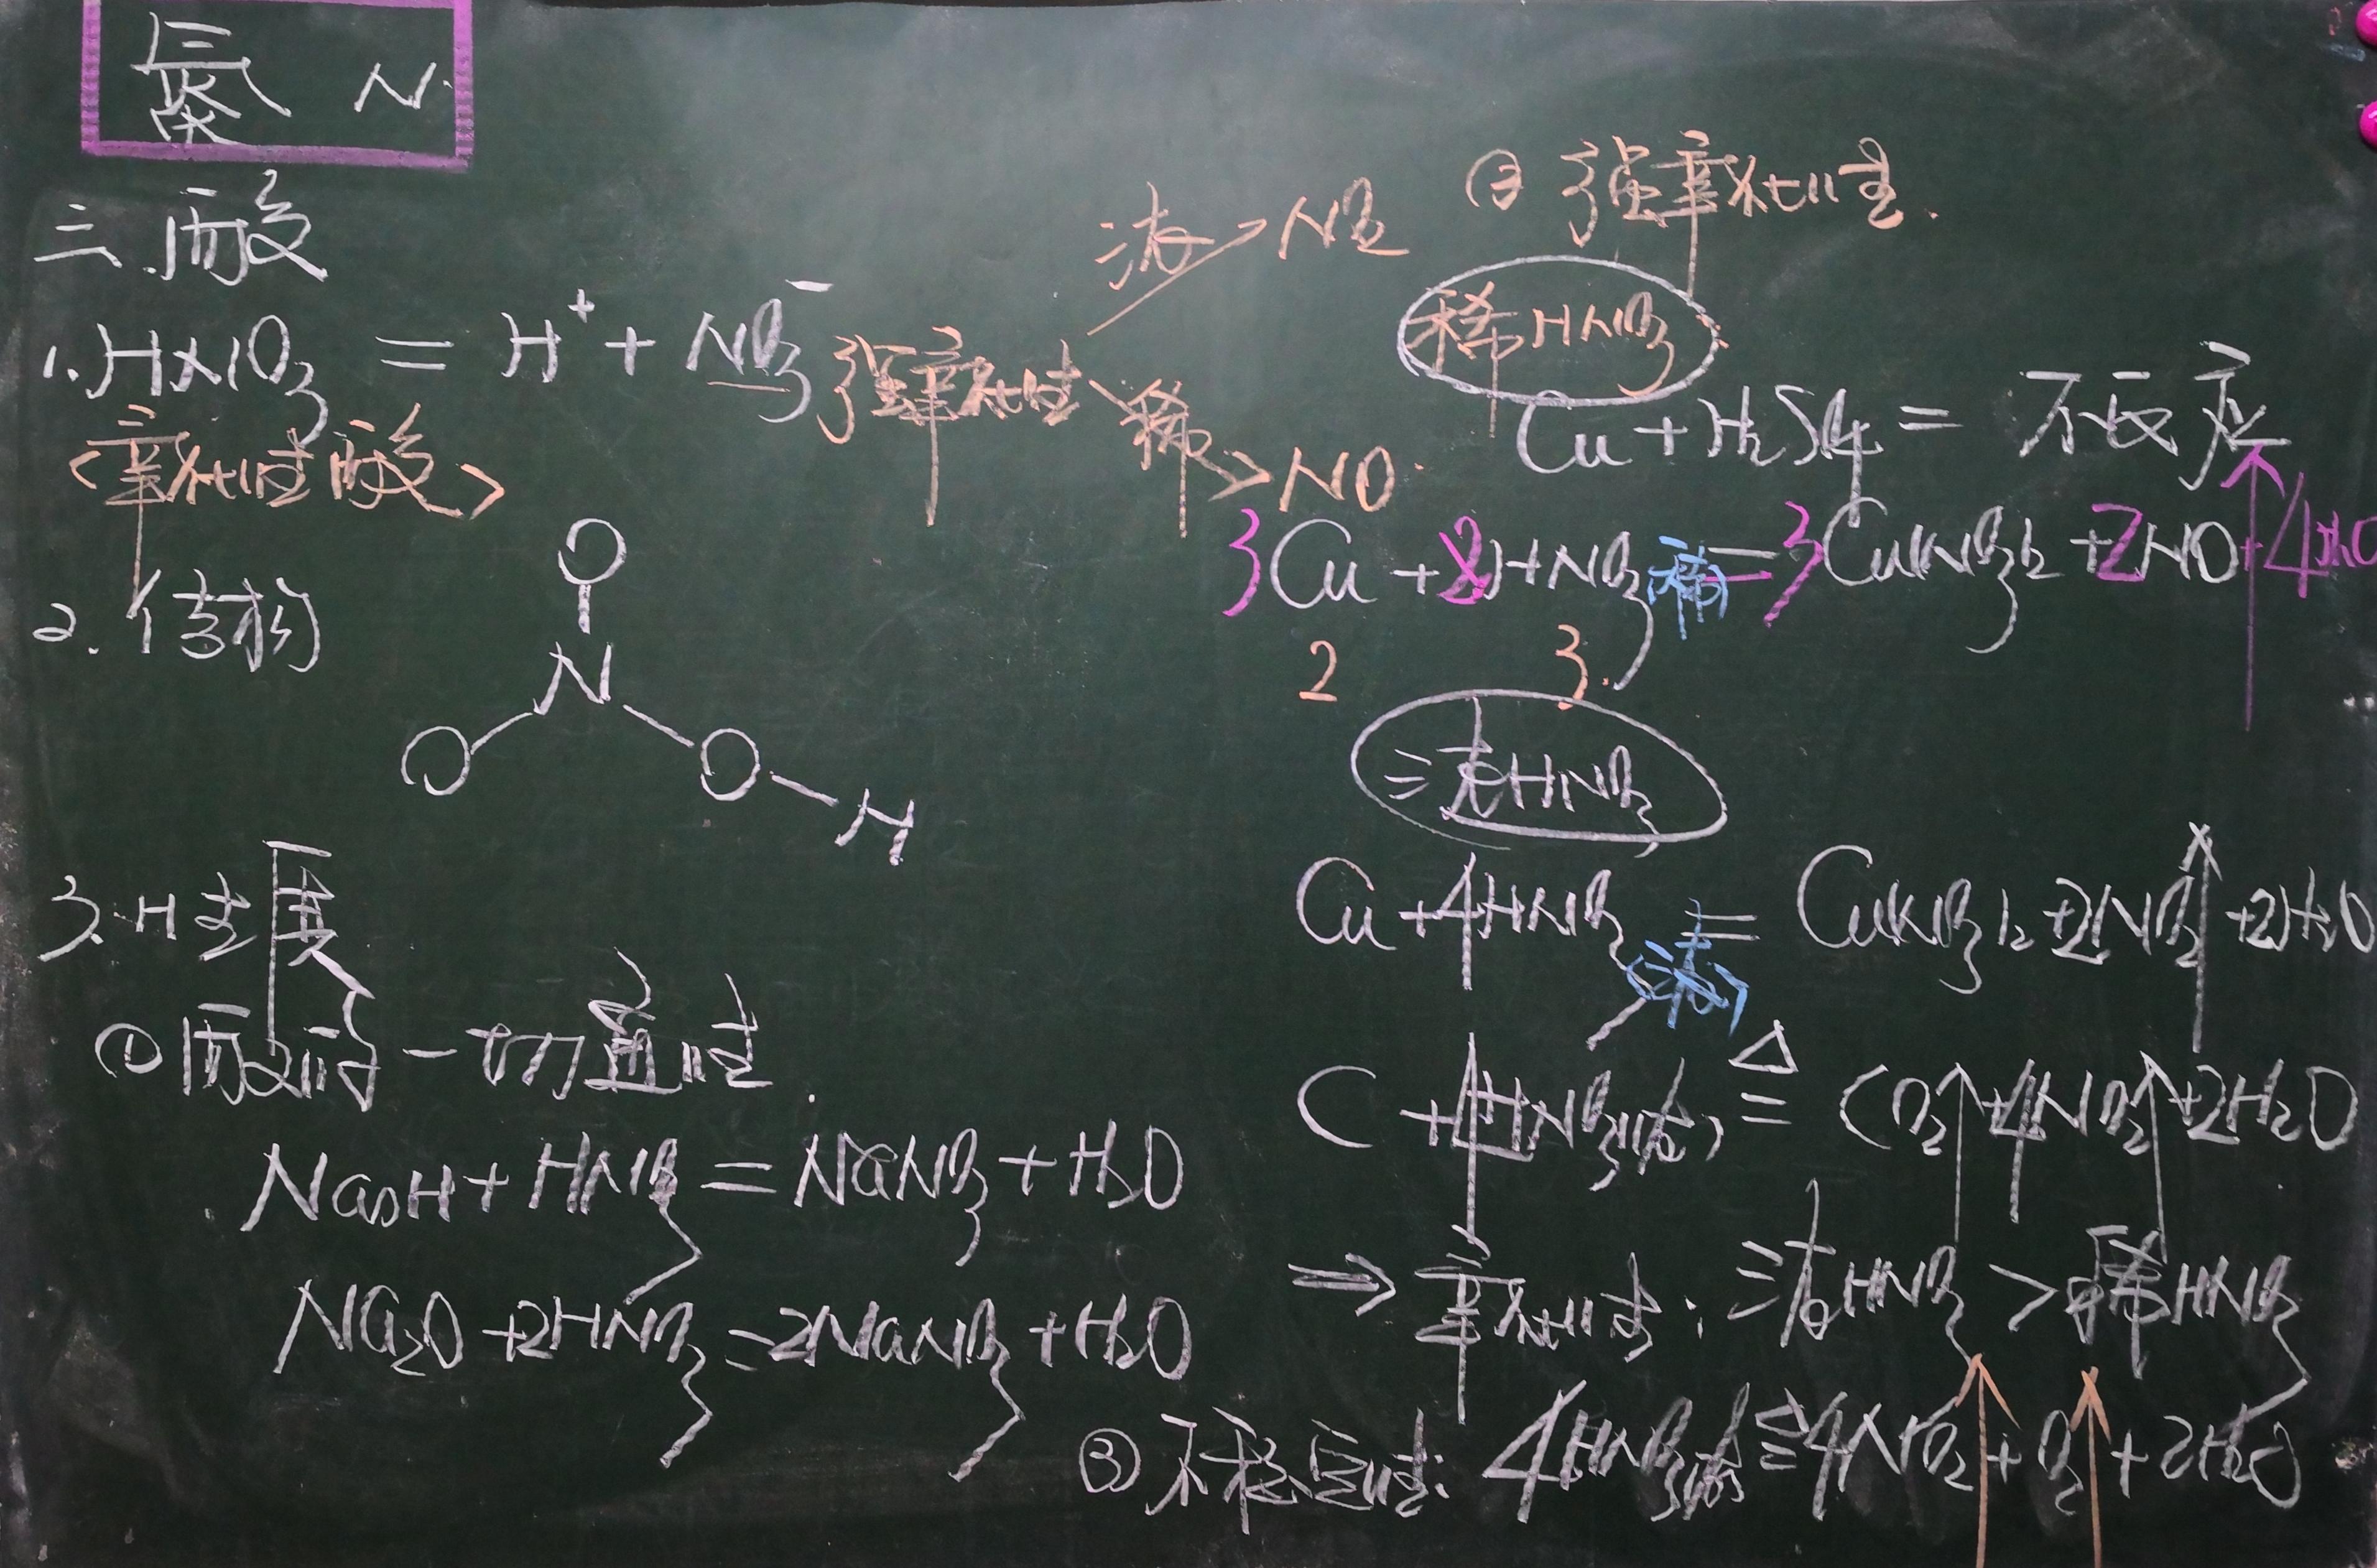 氮 N.
三.酸
1. HNO₃ = H⁺ + NO₃⁻ 强氧化性
浓→NO₂
稀→NO
<氧化性酸>
2. 结构
O
N
O O
H
3. 性质
① 酸的一切通性.
NaOH + HNO₃ = NaNO₃ + H₂O
Na₂O + 2HNO₃ = 2NaNO₃ + H₂O
② 强氧化性.
稀HNO₃
Cu + H₂SO₄ = 不反应
3Cu + 8HNO₃(稀) = 3Cu(NO₃)₂ + 2NO↑ + 4H₂O
2 3.
浓HNO₃
Cu + 4HNO₃(浓) = Cu(NO₃)₂ + 2NO₂↑ + 2H₂O
C + 4HNO₃(浓) =△= CO₂↑ + 4NO₂↑ + 2H₂O
⇒ 氧化性: 浓HNO₃ > 稀HNO₃
③ 不稳定性: 4HNO₃浓 =△= 4NO₂↑ + O₂↑ + 2H₂O